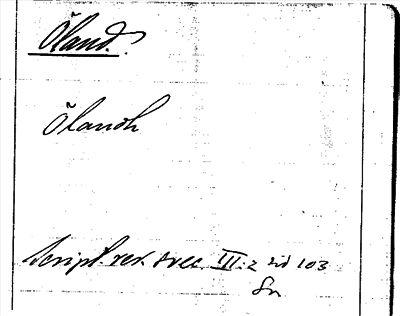 Öland.
Ölandh
Script. rer. svec. III:2 sid 103
Sn